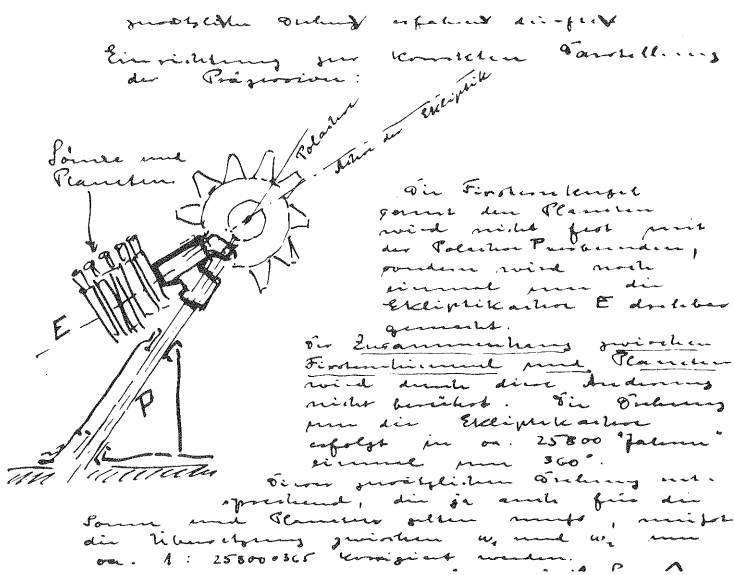 zusätzliche Drehung erfahren
Einrichtung zur korrekten Darstellung
der Präzession:
Polachse
Achse der Ekliptik
Sonne und
Planeten
Die Fixsternkugel
samt den Planeten
wird nicht fest mit
der Polachse P verbunden,
sondern wird noch
einmal um die
Ekliptikachse E drehbar
gemacht.
E
P
Der Zusammenhang zwischen
Fixsternhimmel und Planeten
wird durch diese Änderung
nicht berührt. Die Drehung
um die Ekliptikachse
erfolgt in ca. 25800 "Jahren"
einmal um 360°.
Dieser zusätzlichen Drehung ent-
sprechend, die ja auch für die
Sonne und Planeten gelten muß, müßte
die Übersetzung zwischen ω₁ und ω₂ um
ca. 1 : 25800·365 korrigiert werden.